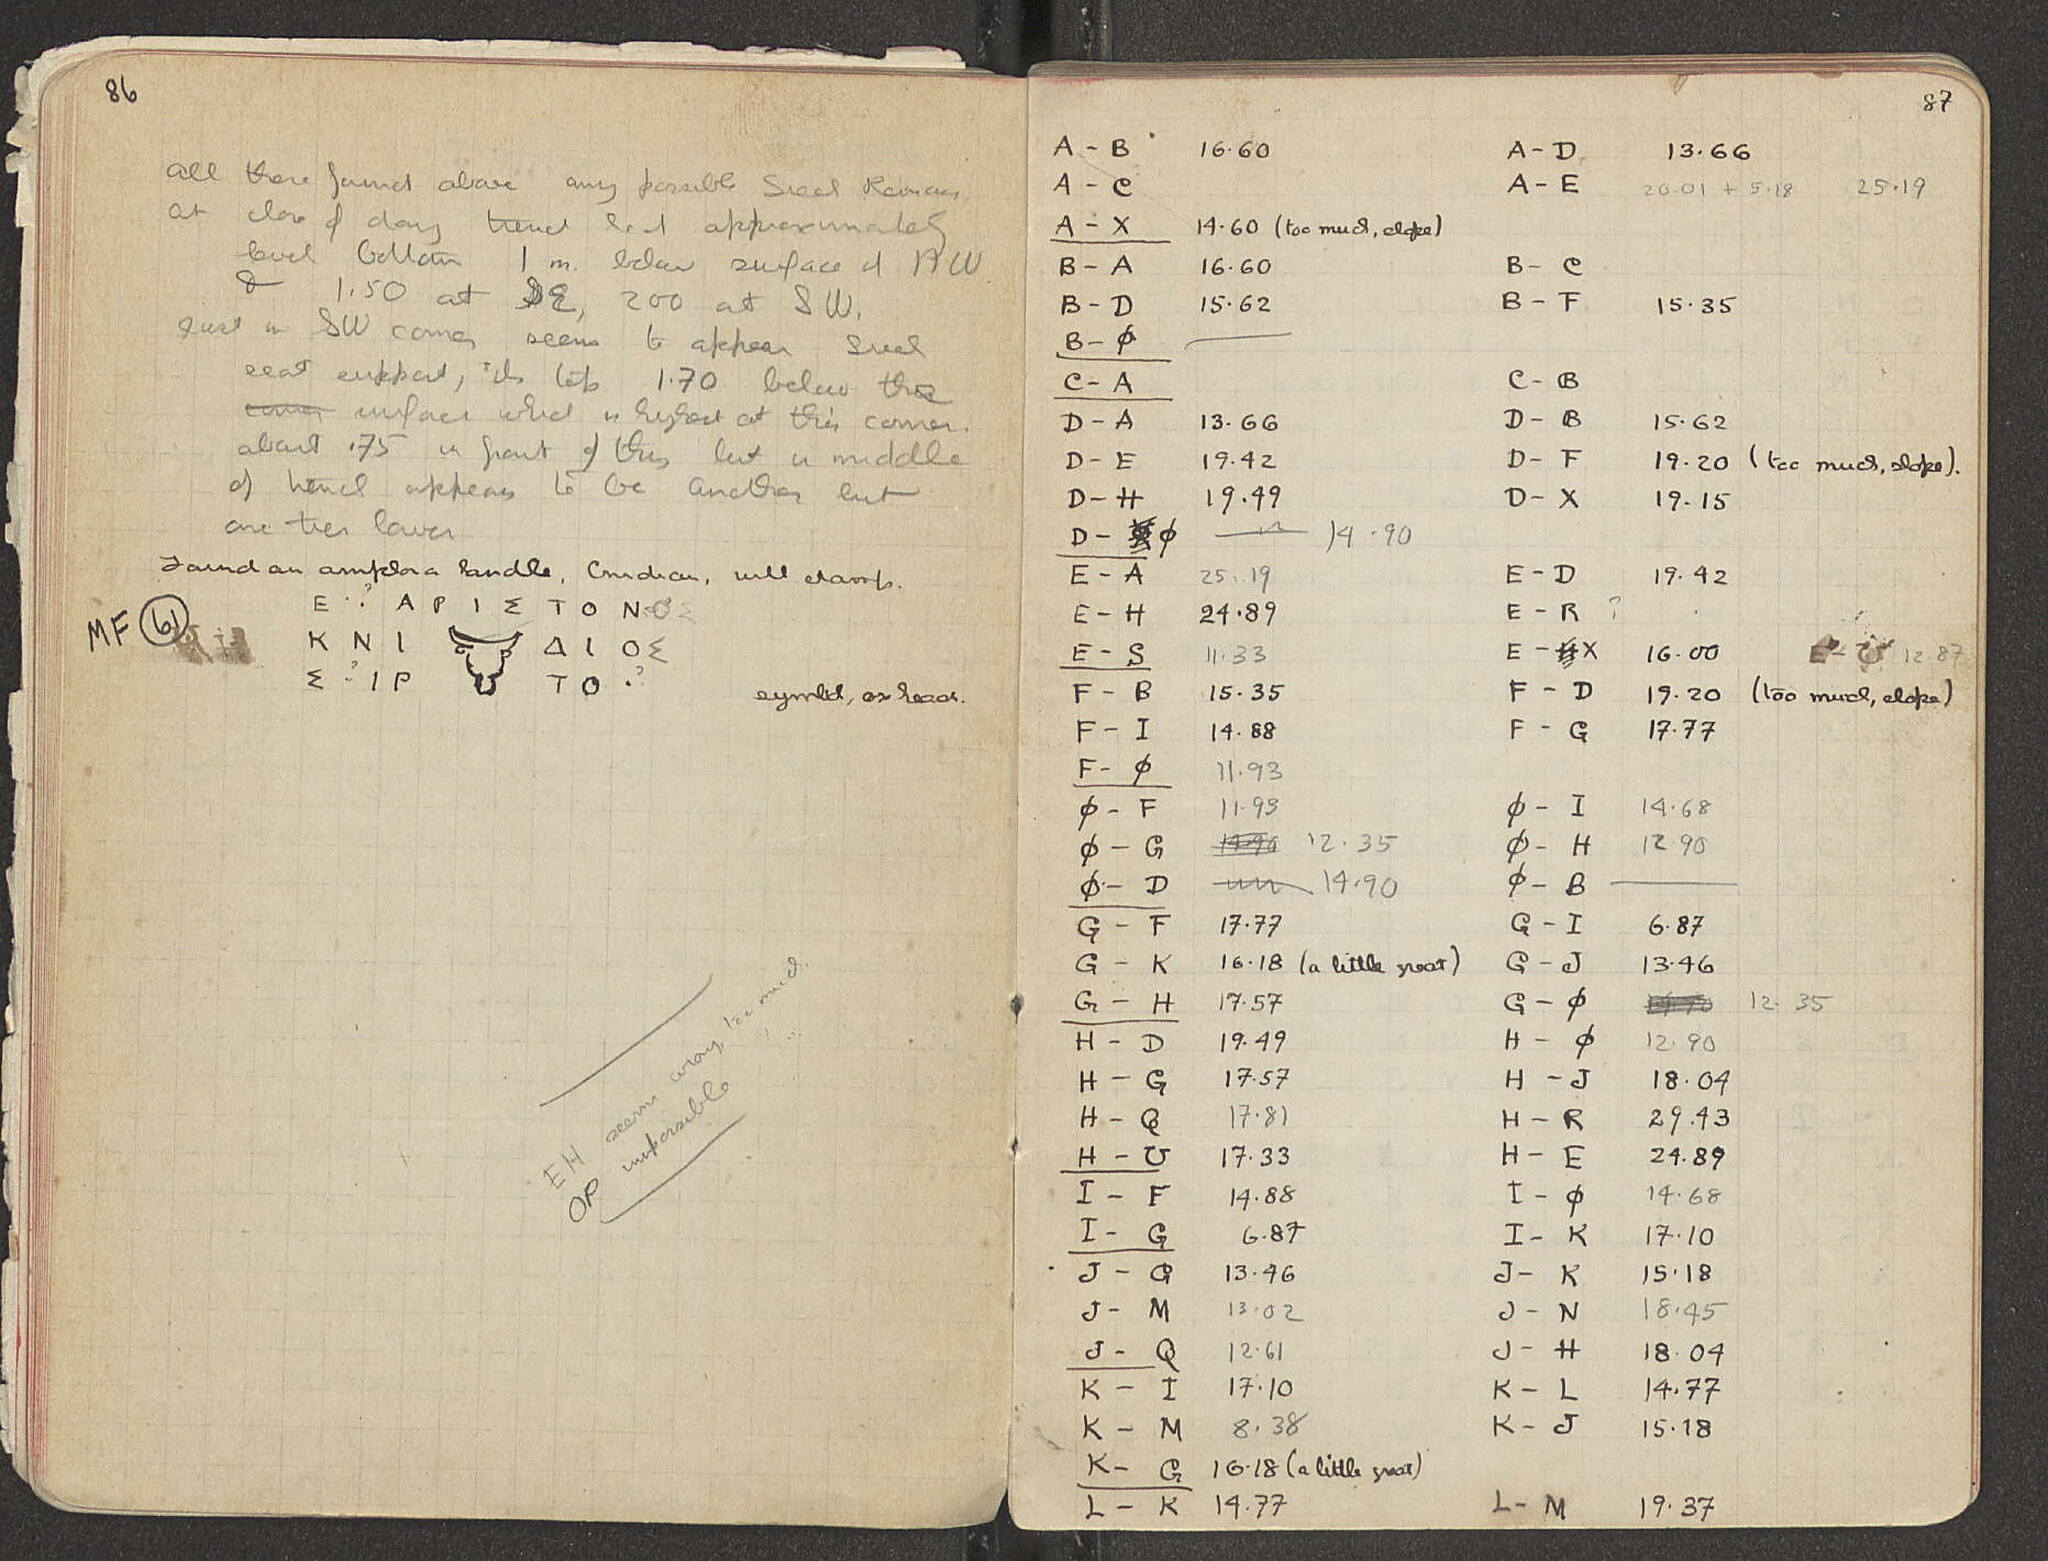 86
All these found above any possible Greek Remains
At close of day trench had approximately
level bottom 1 m. below surface at NW
& 1.50 at SE, 200 at SW.
Just in SW corner seems to appear Greek
seat support, its top 1.70 below the
corner surface which is highest at this corner.
about .75 in front of this but in middle
of trench appears to be another but
one tier lower
Found an amphora handle, Cnidian, with stamp.
MF 61
Ε · ? Α Ρ Ι Σ Τ Ο Ν Ο Σ
Κ Ν Ι Δ Ι Ο Σ
Σ · ? Ι Ρ Τ Ο · ?
symbol, ox head.
EH seems wrong, too much.
OP impossible
87
A - B 16.60 A - D 13.66
A - C A - E 20.01 + 5.18 25.19
A - X 14.60 (too much, slope)
B - A 16.60 B - C
B - D 15.62 B - F 15.35
B - φ —
C - A C - B
D - A 13.66 D - B 15.62
D - E 19.42 D - F 19.20 (too much, slope).
D - H 19.49 D - X 19.15
D - φ — 14.90
E - A 25.19 E - D 19.42
E - H 24.89 E - R ?
E - S 11.33 E - X 16.00 E - U 12.87
F - B 15.35 F - D 19.20 (too much, slope)
F - I 14.88 F - G 17.77
F - φ 11.93
φ - F 11.93 φ - I 14.68
φ - G 12.35 φ - H 12.90
φ - D 14.90 φ - B —
G - F 17.77 G - I 6.87
G - K 16.18 (a little great) G - J 13.46
G - H 17.57 G - φ 12.35
H - D 19.49 H - φ 12.90
H - G 17.57 H - J 18.04
H - Q 17.81 H - R 29.43
H - U 17.33 H - E 24.89
I - F 14.88 I - φ 14.68
I - G 6.87 I - K 17.10
J - G 13.46 J - K 15.18
J - M 13.02 J - N 18.45
J - Q 12.61 J - H 18.04
K - I 17.10 K - L 14.77
K - M 8.38 K - J 15.18
K - G 16.18 (a little great)
L - K 14.77 L - M 19.37